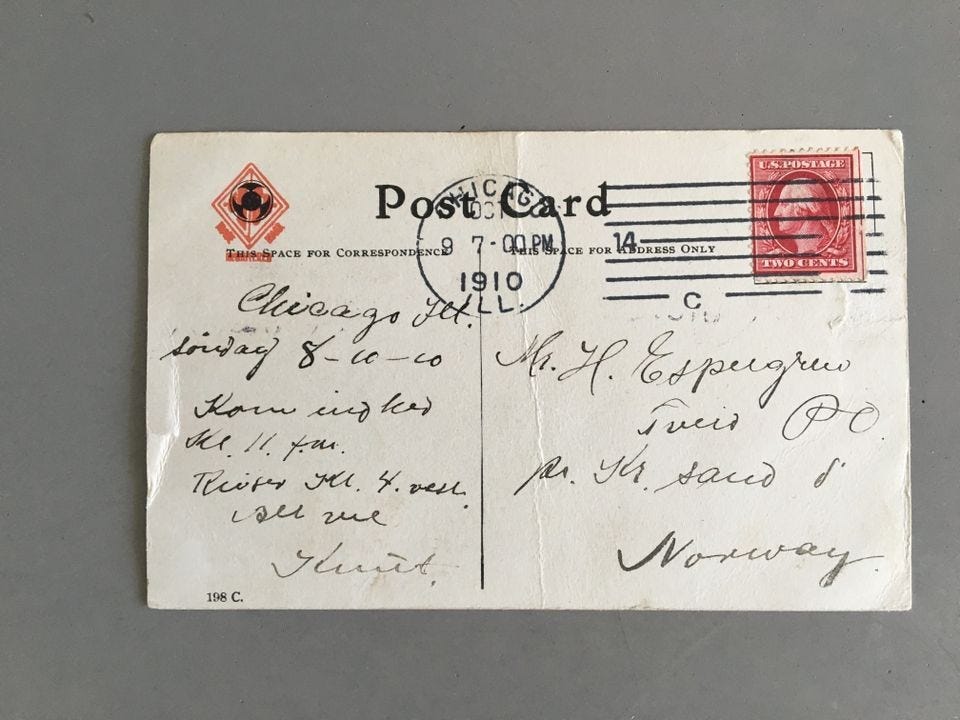 Post Card
THIS SPACE FOR CORRESPONDENCE
THIS SPACE FOR ADDRESS ONLY
CHICAGO
OCT
9 7-00 PM
1910
ILL.
14
C
U.S. POSTAGE
TWO CENTS
Chicago Ill.
8-10-10
Kom
Kl. 11 f.m.
Reiser Kl. 4.
Alt vel
Knut.
Mr. H. Espegren
Tveid PO
pr. Kr. sand S
Norway.
198 C.